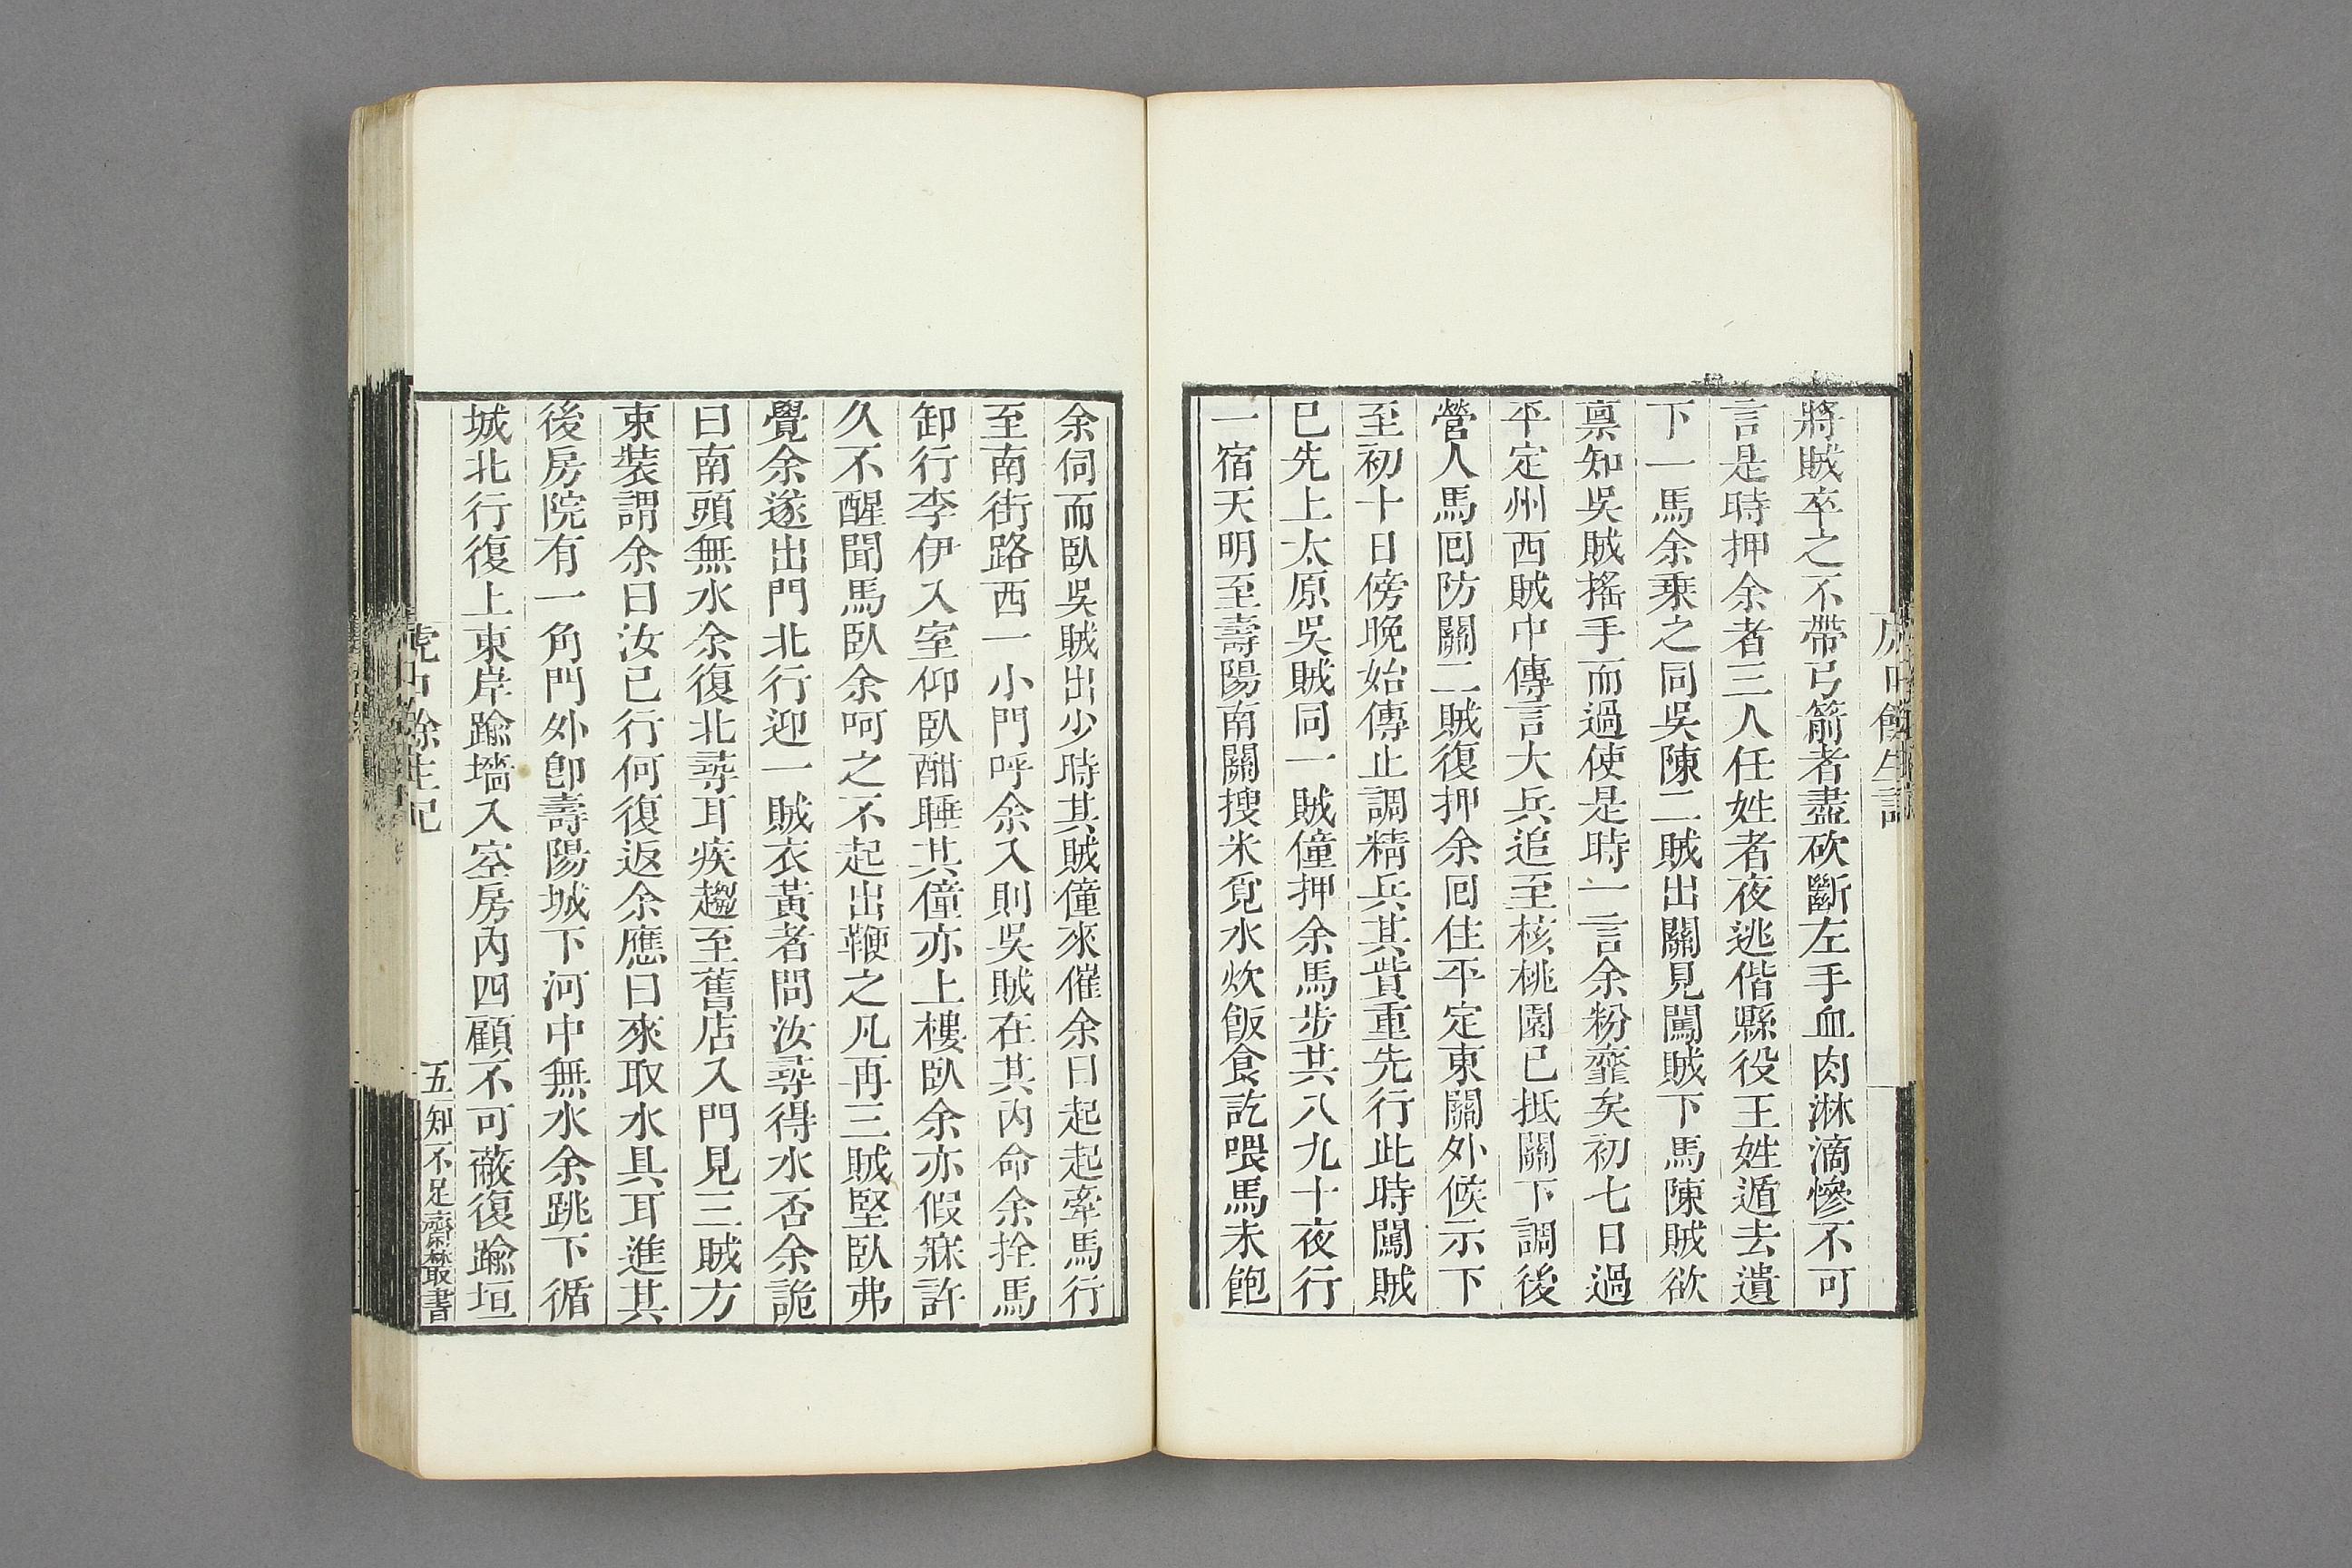 虎口餘生記
將賊卒之不帶弓箭者盡砍斷左手血肉淋滴慘不可
言是時押余者三人任姓者夜逃偕縣役王姓遁去遺
下一馬余乗之同吳陳二賊出關見闖賊下馬陳賊欲
禀知吳賊搖手而過使是時一言余粉虀矣初七日過
平定州西賊中傳言大兵追至核桃園已抵關下調後
營人馬囘防關二賊復押余囘住平定東關外候示下
至初十日傍晚始傳止調精兵其貲重先行此時闖賊
已先上太原吳賊同一賊僮押余馬步共八九十夜行
一宿天明至壽陽南關搜米覓水炊飯食訖喂馬未飽
余伺而臥吳賊出少時其賊僮來催余曰起起牽馬行
至南街路西一小門呼余入則吳賊在其內命余拴馬
卸行李伊入室仰臥酣睡其僮亦上樓臥余亦假寐許
久不醒聞馬臥余呵之不起出鞭之凡再三賊堅臥弗
覺余遂出門北行迎一賊衣黃者問汝尋得水否余詭
曰南頭無水余復北尋耳疾趨至舊店入門見三賊方
束裝謂余曰汝已行何復返余應曰來取水具耳進其
後房院有一角門外卽壽陽城下河中無水余跳下循
城北行復上東岸踰墻入空房內四顧不可蔽復踰垣
虎口餘生記
五
知不足齋叢書